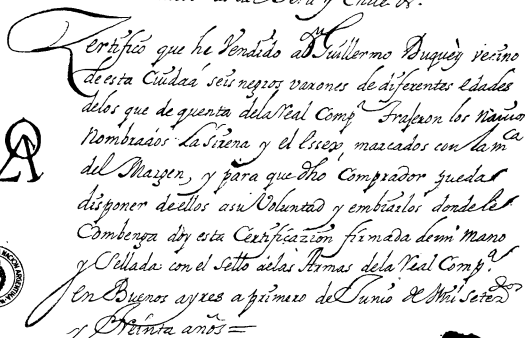 y Chile &.
Zertifico que he Vendido a Dn Guillermo Duquèy vezino
de esta Ciudad seis negros varones de diferentes edades
delos que de quenta dela Real Compª trajeron los navios
Nombrados La Sirena y el Essex, marcados con la mca
del Margen, y para que dho Comprador pueda
disponer deellos asu Voluntad y embiarlos donde le
Combenga doy esta Certificazion firmada demi mano
y Sellada con el Sello delas Armas dela Real Compª.
En Buenos ayres a primero de Junio de Mil Setezos
y Treinta años =